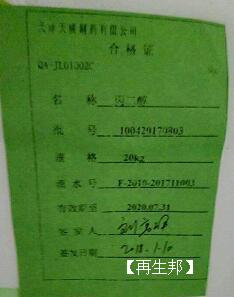 天津天威制药有限公司
合格证
QA-JL01002C
名 称 丙二醇
批 号 100429170803
规 格 20kg
流水号 F-2010-201711003
有效期至 2020.07.31
签发人
签发日期 2018.1.10
【再生邦】